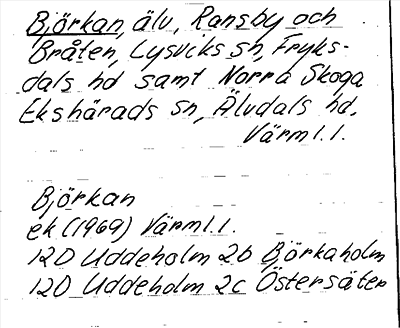 Björkan, älv, Ransby och
Bråten, Lysviks sn, Fryks-
dals hd samt Norra Skoga
Ekshärads sn, Älvdals hd.
Värml.l.
Björkan
ek (1969) Värml.l.
12D Uddeholm 2b Björkaholm
12D Uddeholm 2c Östersäter